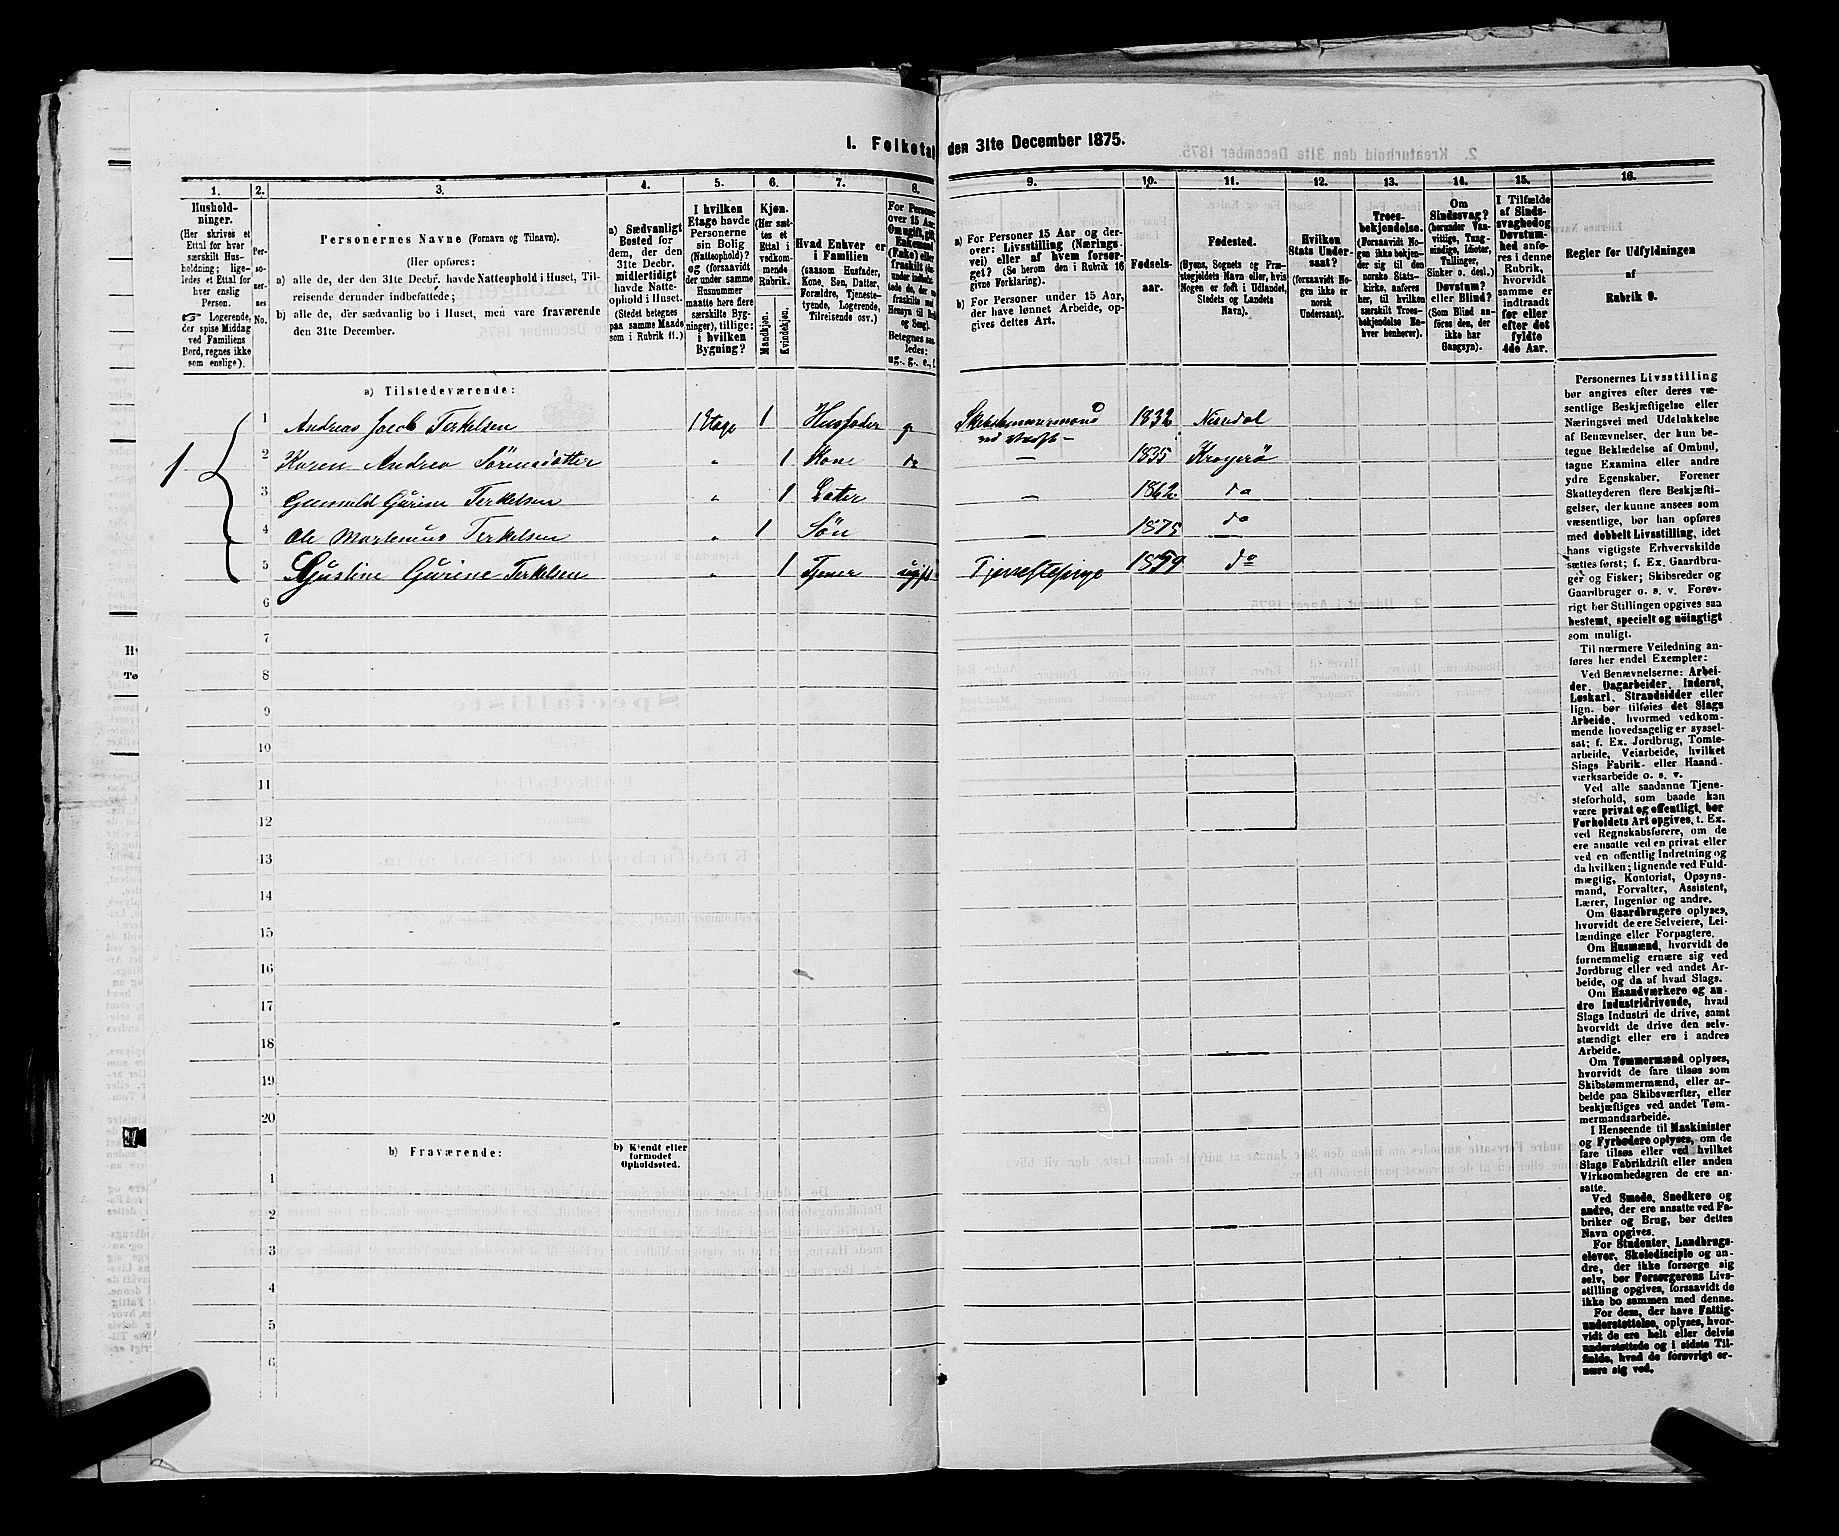 I. Folketal den 31te December 1875.
1. 2. 3. 4. 5. 6. 7. 8. 9. 10. 11. 12. 13. 14. 15. 16.
Hushold-
ninger.
(Her skrives et
Ettal for hver
særskilt Hus-
holdning; lige-
ledes et Ettal for
hver enslig
Person.
☞ Logerende,
der spise Middag
ved Familiens
Bord, regnes ikke
som enslige).
Per-
so-
ner-
nes
No.
Personernes Navne (Fornavn og Tilnavn).
(Her opføres:
a) alle de, der den 31te Decbr. havde Natteophold i Huset, Til-
reisende derunder indbefattede;
b) alle de, der sædvanlig bo i Huset, men vare fraværende
den 31te December.
a) Sædvanligt
Bosted for
dem, der den
31te Decbr.
midlertidigt
havde Natte-
ophold i Huset.
(Stedet betegnes
paa samme Maade
som i Rubrik 11.)
I hvilken
Etage havde
Personerne
sin Bolig
(Natteophold)?
og (forsaavidt
der under samme
Husnummer
maatte høre flere
særskilte Byg-
ninger), tillige:
i hvilken
Bygning?
Kjøn.
(Her sæt-
tes et
Ettal i
vedkom-
mende
Rubrik.
Mandkjøn.
Kvindekjøn.
Hvad Enhver er
i Familien
(saasom Husfader,
Kone, Søn, Datter,
Forældre, Tjeneste-
tyende, Logerende,
Tilreisende osv.)
For Personer
over 15 Aar:
Om ugift, gift,
Enkemand
(Enke) eller
fraskilt
Betegnes saa-
ledes:
ug., g., e., f.
a) For Personer 15 Aar og der-
over: Livsstilling (Nærings-
vei) eller af hvem forsør-
get? (Se herom den i Rubrik 16
givne Forklaring).
b) For Personer under 15 Aar,
der have lønnet Arbeide, op-
gives dettes Art.
Fødsels-
aar.
Fødested.
(Byens, Sognets og Præ-
stegjeldets Navn eller, hvis
Nogen er født i Udlandet,
Stedets og Landets
Navn).
Hvilken
Stats Under-
saat?
(forsaavidt No-
gen ikke er
norsk
Undersaat).
Troes-
bekjendelse.
(Forsaavidt No-
gen ikke bekjen-
der sig til den
norske Stats-
kirke, anføres
her, til hvilken
særskilt Troes-
bekjendelse En-
hver henhører).
Om
Sindssvag?
(herunder Van-
vittige, Tung-
sindige, Idioter,
Tullinger,
Sinker o. desl.)
Døvstum?
eller Blind?
(Som Blind an-
føres den, der
ikke har
Gangsyn).
I Tilfælde
af Sinds-
svaghed og
Døvstum-
hed anfø-
res i denne
Rubrik,
hvorvidt
samme er
indtraadt
før eller
efter det
fyldte
4de Aar.
Regler for Udfyldningen
af
Rubrik 9.
a) Tilstedeværende:
1 Andreas Jacob Terkelsen 1 Etage 1 Husfader g Skibstømmermand 1832 Nissedal
2 Karen Andrea Sörensdatter " 1 Kone do — 1835 Kragerö
3 Gunnild Gurine Terkelsen " 1 Dater — 1862 do
4 Ole Martenius Terkelsen " 1 Sön — 1875 do
5 Gustine Gurine Terkelsen " 1 Tjener ugift Tjenestepige 1859 do
6
7
8
9
10
11
12
13
14
15
16
17
18
19
20
b) Fraværende:
b) Kjendt eller
formodet
Opholdssted.
1
2
3
4
5
6
Personernes Livsstilling
bør angives efter deres væ-
sentlige Beskjæftigelse eller
Næringsvei med Udelukkelse
af Benævnelser, der kun be-
tegne Beklædelse af Ombud,
tagne Examina eller andre
ydre Egenskaber. Forener
Skatteyderen flere Beskjæfti-
gelser, der kunne ansees som
væsentlige, bør han opføres
med dobbelt Livsstilling, idet
hans vigtigste Erhvervskilde
sættes først; f. Ex. Gaardbru-
ger og Fisker; Skibsreder og
Gaardbruger o. s. v. Forøv-
rigt bør Stillingen opgives saa
bestemt, specielt og nöiagtigt
som muligt.
Til nærmere Veiledning an-
føres her endel Exempler:
Ved Benævnelserne: Arbei-
der, Dagarbeider, Inderst,
Løskarl, Strandsidder eller
lign. bør tilføies det Slags
Arbeide, hvormed vedkom-
mende hovedsagelig er syssel-
sat; f. Ex. Jordbrug, Tomte-
arbeide, Veiarbeide, hvilket
Slags Fabrik- eller Haand-
værksarbeide o. s. v.
Ved alle saadanne Tjene-
steforhold, som baade kan
være privat og offentligt, bør
Forholdets Art opgives, t. Ex.
ved Regnskabsførere, om de
ere ansatte ved en privat eller
ved en offentlig Indretning og
da hvilken; lignende ved Fuld-
mægtig, Kontorist, Opsyns-
mand, Forvalter, Assistent,
Lærer, Ingeniør og andre.
Om Gaardbrugere oplyses,
hvorvidt de ere Selveiere, Lei-
lændinge eller Forpagtere.
Om Husmænd, hvorvidt de
fornemmelig ernære sig ved
Jordbrug eller ved andet Ar-
beide, og da af hvad Slags.
Om Haandværkere og an-
dre Industridrivende, hvad
Slags Industri de drive, samt
hvorvidt de drive den selv-
stændigt eller ere i andres
Arbeide.
Om Tømmermænd oplyses,
hvorvidt de fare tilsøs som
Skibstømmermænd, eller ar-
beide paa Skibsværfter, eller
beskjæftiges ved andet Tøm-
mermandsarbeide.
I Henseende til Maskinister
og Fyrbødere oplyses, om de
fare tilsøs eller ved hvilket
Slags Fabrikdrift eller anden
Virksomhedsgren de ere an-
satte.
Ved Smede, Snedkere og
andre, der ere ansatte ved Fa-
briker og Brug, bør dettes
Navn opgives.
For Studenter, Landbrugs-
elever, Skoledisciple og an-
dre, der ikke forsørge sig
selv, bør Forsørgerens Livs-
stilling opgives, forsaavidt de
ikke bo sammen med denne.
For dem, der have Fattig-
understøttelse, oplyses, hvor-
vidt de ere helt eller delvis
understøttede og i sidste Til-
fælde, hvad de forøvrigt er-
nære sig ved.